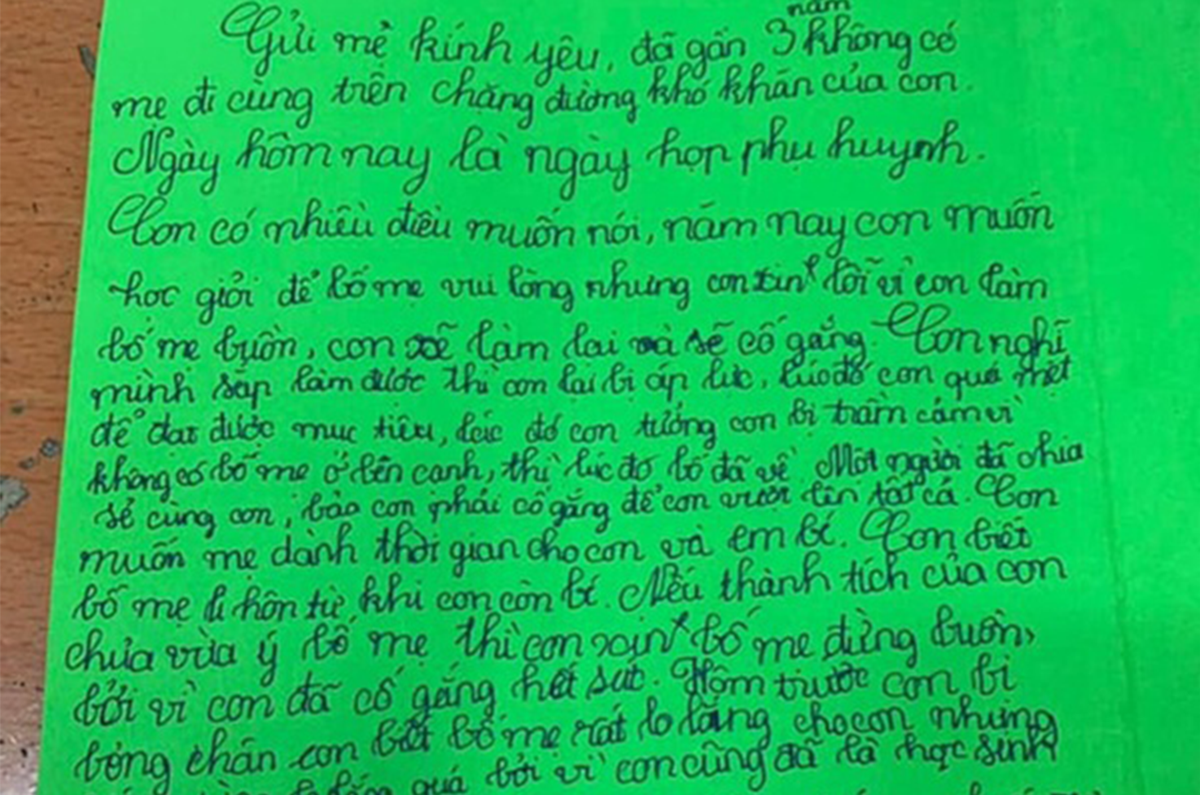 năm
Gửi mẹ kính yêu, đã gần 3 không có
mẹ đi cùng trên chặng đường khó khăn của con.
Ngày hôm nay là ngày họp phụ huynh.
Con có nhiều điều muốn nói, năm nay con muốn
học giỏi để bố mẹ vui lòng nhưng con xin lỗi vì con làm
bố mẹ buồn, con sẽ làm lại và sẽ cố gắng. Con nghĩ
mình sắp làm được thì con lại bị áp lực, lúc đó con quá mệt
để đạt được mục tiêu, lúc đó con tưởng con bị trầm cảm vì
không có bố mẹ ở bên cạnh, thì lúc đó bố đã về Một người đã chia
sẻ cùng con, bảo con phải cố gắng để con vượt lên tất cả. Con
muốn mẹ dành thời gian cho con và em bé. Con biết
bố mẹ li hôn từ khi con còn bé. Nếu thành tích của con
chưa vừa ý bố mẹ thì con xin bố mẹ đừng buồn,
bởi vì con đã cố gắng hết sức. Hôm trước con bị
bỏng chân con biết bố mẹ rất lo lắng cho con nhưng
quá bởi vì con cũng đã là học sinh